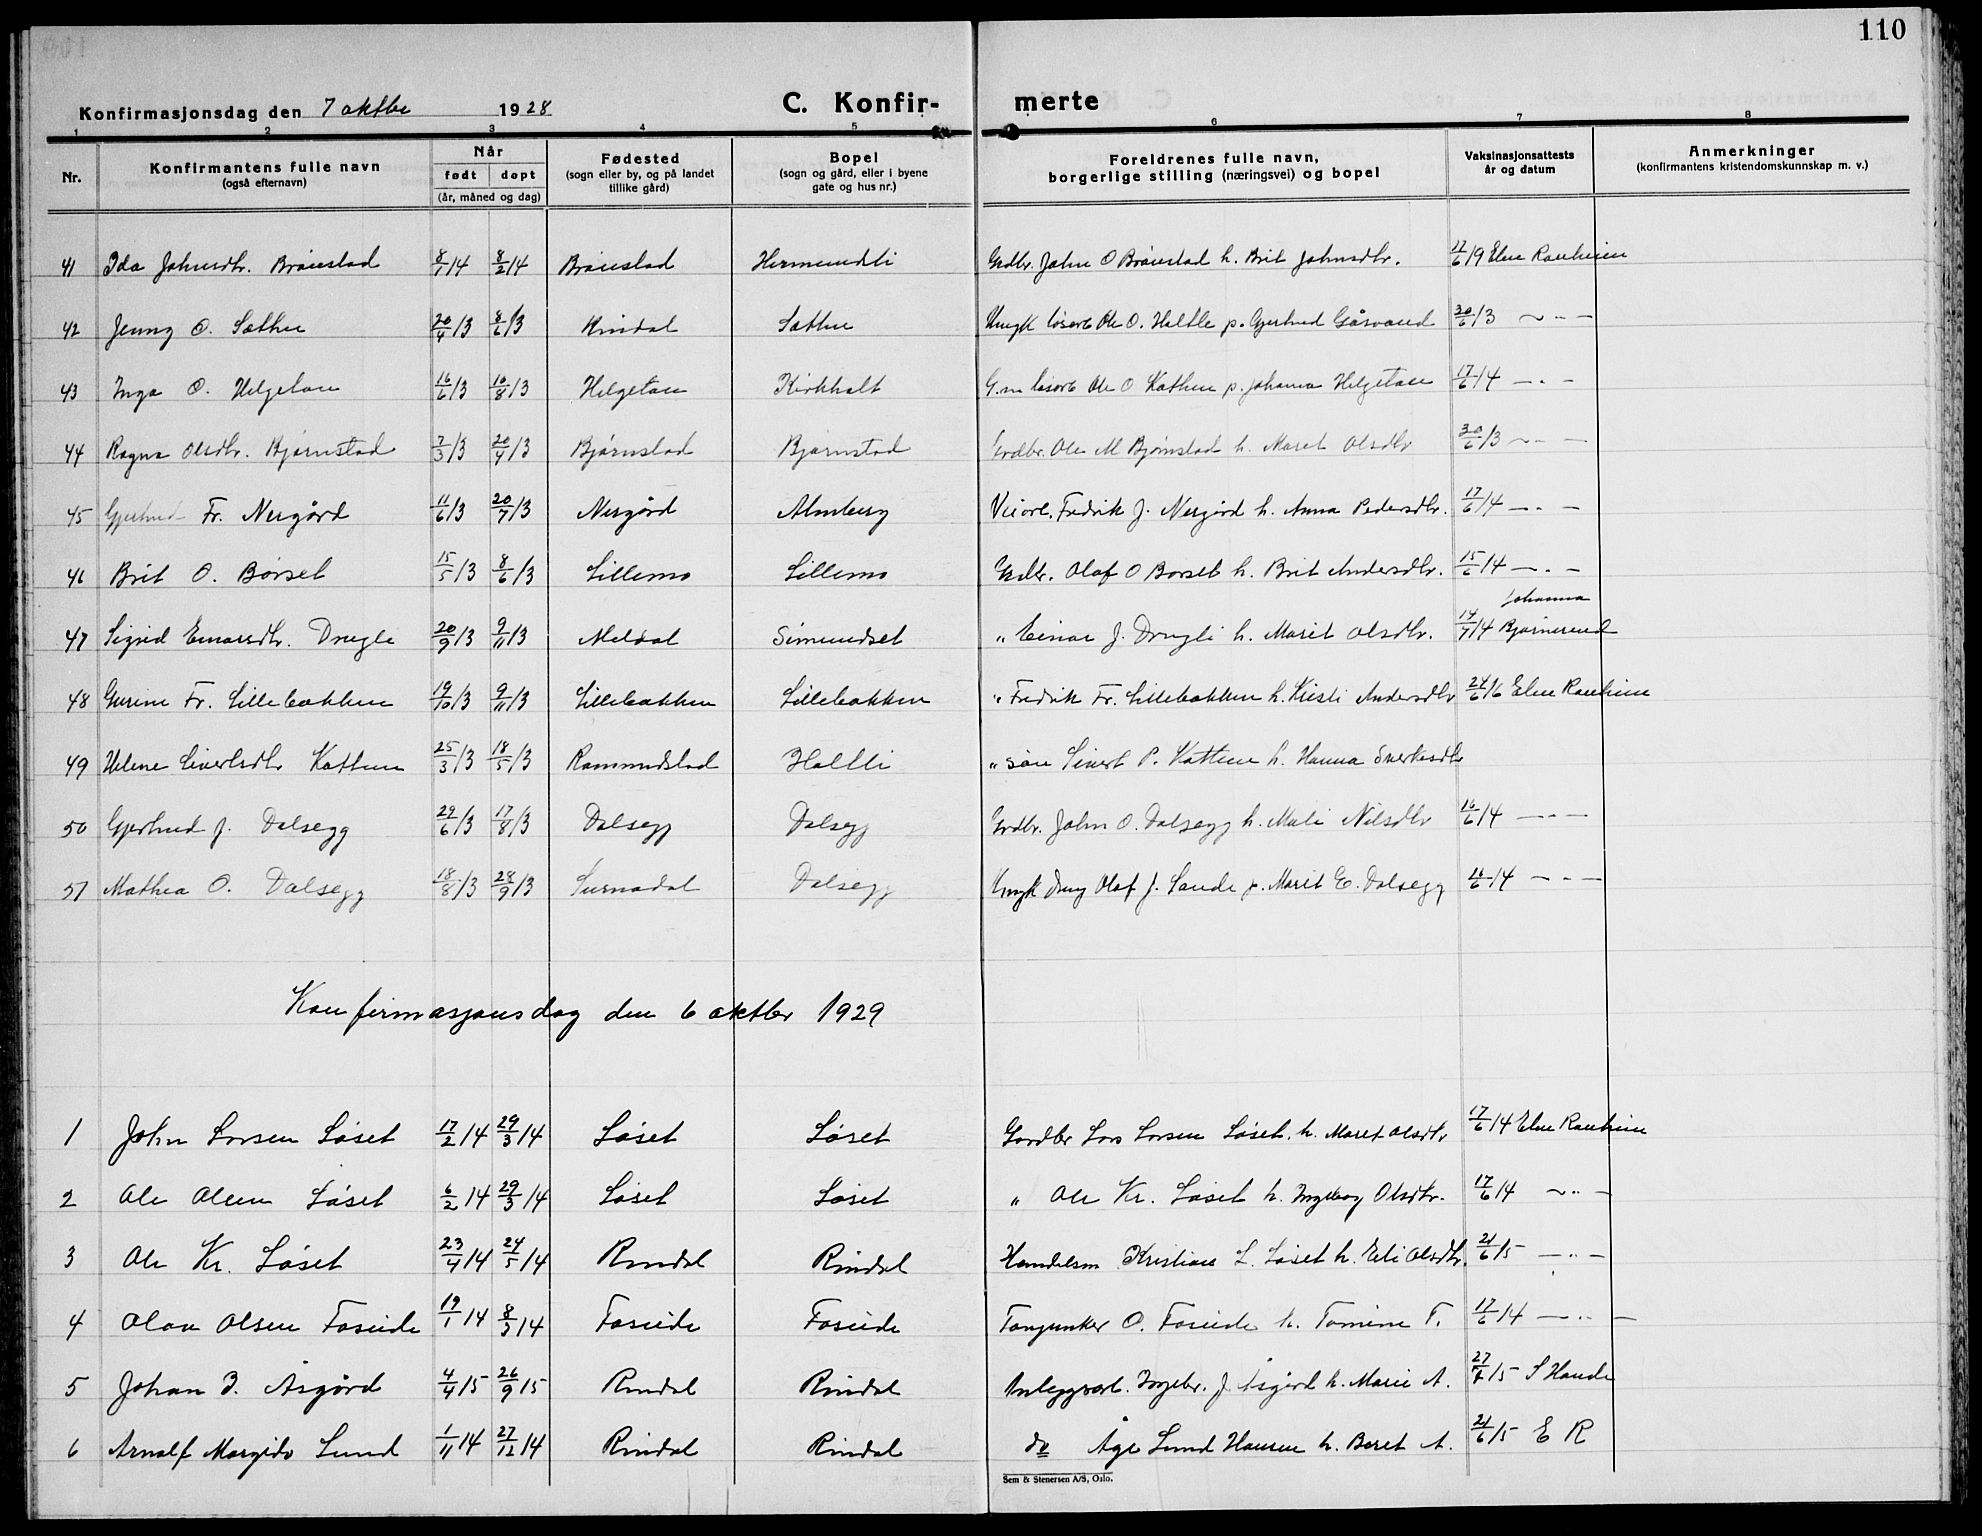 110
Konfirmasjonsdag den 7 oktbr 1928 C. Konfir- merte
1 2 3 4 5 6 7 8
Nr. Konfirmantens fulle navn (også efternavn) Når født døpt (år, måned og dag) Fødested (sogn eller by, og på landet tillike gård) Bopel (sogn og gård, eller i byene gate og hus nr.) Foreldrenes fulle navn, borgerlige stilling (næringsvei) og bopel Vaksinasjonsattests år og datum Anmerkninger (konfirmantens kristendomskunnskap m. v.)
41 Ida Johnsdtr. Brønstad 8/1 14 8/2 14 Brønstad Hermundli Grdbr. John O Brønstad h. Brit Johnsdtr. 17/6 19 Elen Ranheim
42 Jenny O. Sæther 20/4 13 8/6 13 Rindal Sæther Ungk løsarb Ole O. Haltle p. Gjertrud Gåsvand 30/6 13 ~ " —
43 Inga O. Helgetun 16/6 13 10/8 13 Helgetun Kirkholt G.m løsarb Ole O Kattem p. Johanna Helgetun 17/6 14 — " —
44 Ragna Olsdtr. Bjørnstad 7/3 13 20/4 13 Bjørnstad Bjørnstad Grdbr. Ole M Bjørnstad h. Maret Olsdtr 30/6 13 ~ " —
45 Gjertrud Fr. Nergård 11/6 13 20/7 13 Nergård Almberg Fredrik J. Nergård h. Anna Pedersdtr. 17/6 14 — " —
46 Brit O. Børset 15/5 13 8/6 13 Lillemo Lillemo Grdbr. Olaf O Børset h. Brit Andersdtr. 15/6 14 — " —
47 Sigrid Einarsdtr. Drugli 20/9 13 9/11 13 Meldal Simundset " Einar J. Drugli h. Marit Olsdtr. 14/7 14 Johanna Bjørnerud
48 Gurine Fr. Lillebakken 19/10 13 9/11 13 Lillebakken Lillebakken " Fredrik Fr. Lillebakken h. Kristi Andersdtr 24/6 16 Elen Ranheim
49 Helene Sivertsdtr Kattem 25/3 13 18/5 13 Romundstad Haltli " søn Sivert P. Kattem h. Hanna Sverkesdtr
50 Gjertrud J. Dalsegg 29/6 13 17/8 13 Dalsegg Dalsegg Grdbr. John O. Dalsegg h. Mali Nilsdtr 16/6 14 — " —
51 Mathea O. Dalsegg 18/8 13 28/9 13 Surnadal Dalsegg Ungk Dreng Olaf J. Sande p. Marit E. Dalsegg 16/6 14 — " —
Konfirmasjonsdag den 6 oktbr 1929
1 John Larsen Løset 17/2 14 29/3 14 Løset Løset Gardbr Lars Larsen Løset h. Maret Olsdtr 17/6 14 Elen Ranheim
2 Ole Olsen Løset 6/2 14 29/3 14 Løset Løset " Ole Kr. Løset h. Ingeborg Olsdtr. 17/6 14 ~ " —
3 Ole Kr. Løset 23/4 14 24/5 14 Rindal Rindal Handelsm Kristian L. Løset h. Eli Olsdtr. 21/6 15 — " —
4 Olav Olsen Foseide 19/1 14 8/3 14 Foseide Foseide O. Foseide h. Tomine T. 17/6 14 — " —
5 Johan I. Åsgård 4/4 15 26/9 15 Rindal Rindal Anleggsarb. Ingebr. J. Åsgård h. Marie A. 27/6 15 S Hande
6 Arnolf Margido Lund 1/11 14 27/12 14 Rindal Rindal do Åge Lund Hansen h. Beret A. 21/6 15 E R
Sem & Stenersen A/S, Oslo.